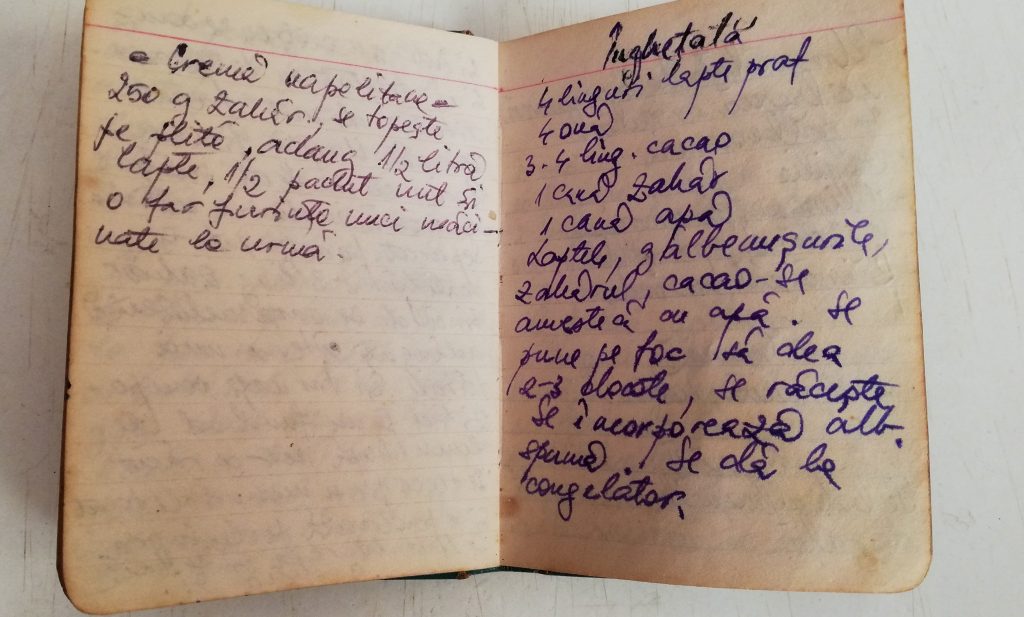 - Cremă napolitane -
250 g zahăr, se topește
pe plită, adaug 1/2 litră
lapte, 1/2 pachet unt și
o farfuriuță nuci măci-
nate la urmă.
Înghețată
4 linguri lapte praf
4 ouă
3-4 ling. cacao
1 cană zahăr
1 cană apă
Laptele, gălbenușurile,
zahărul, cacao - se
amestecă cu apă. Se
pune pe foc să dea
2-3 clocote, se răcește,
se incorporează alb.
spumă. Se dă la
congelator.